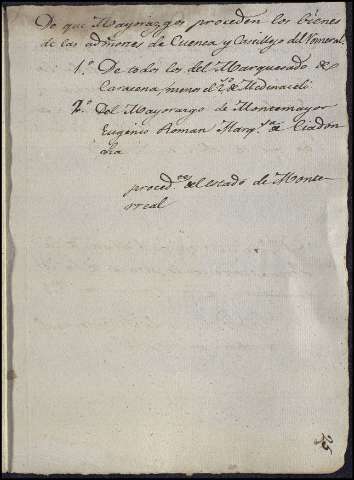 De que Mayorazgos proceden los bienes
de las admones de Cuenca y Castillejo del Romeral
1.º De todos los del Marquesado de
Caracena, menos el 2.º de Medinaceli
2.º Del Mayorazgo de Montemayor
Eugenio Roman Marq.sa de
proced.tes del estado de Monte-
rreal